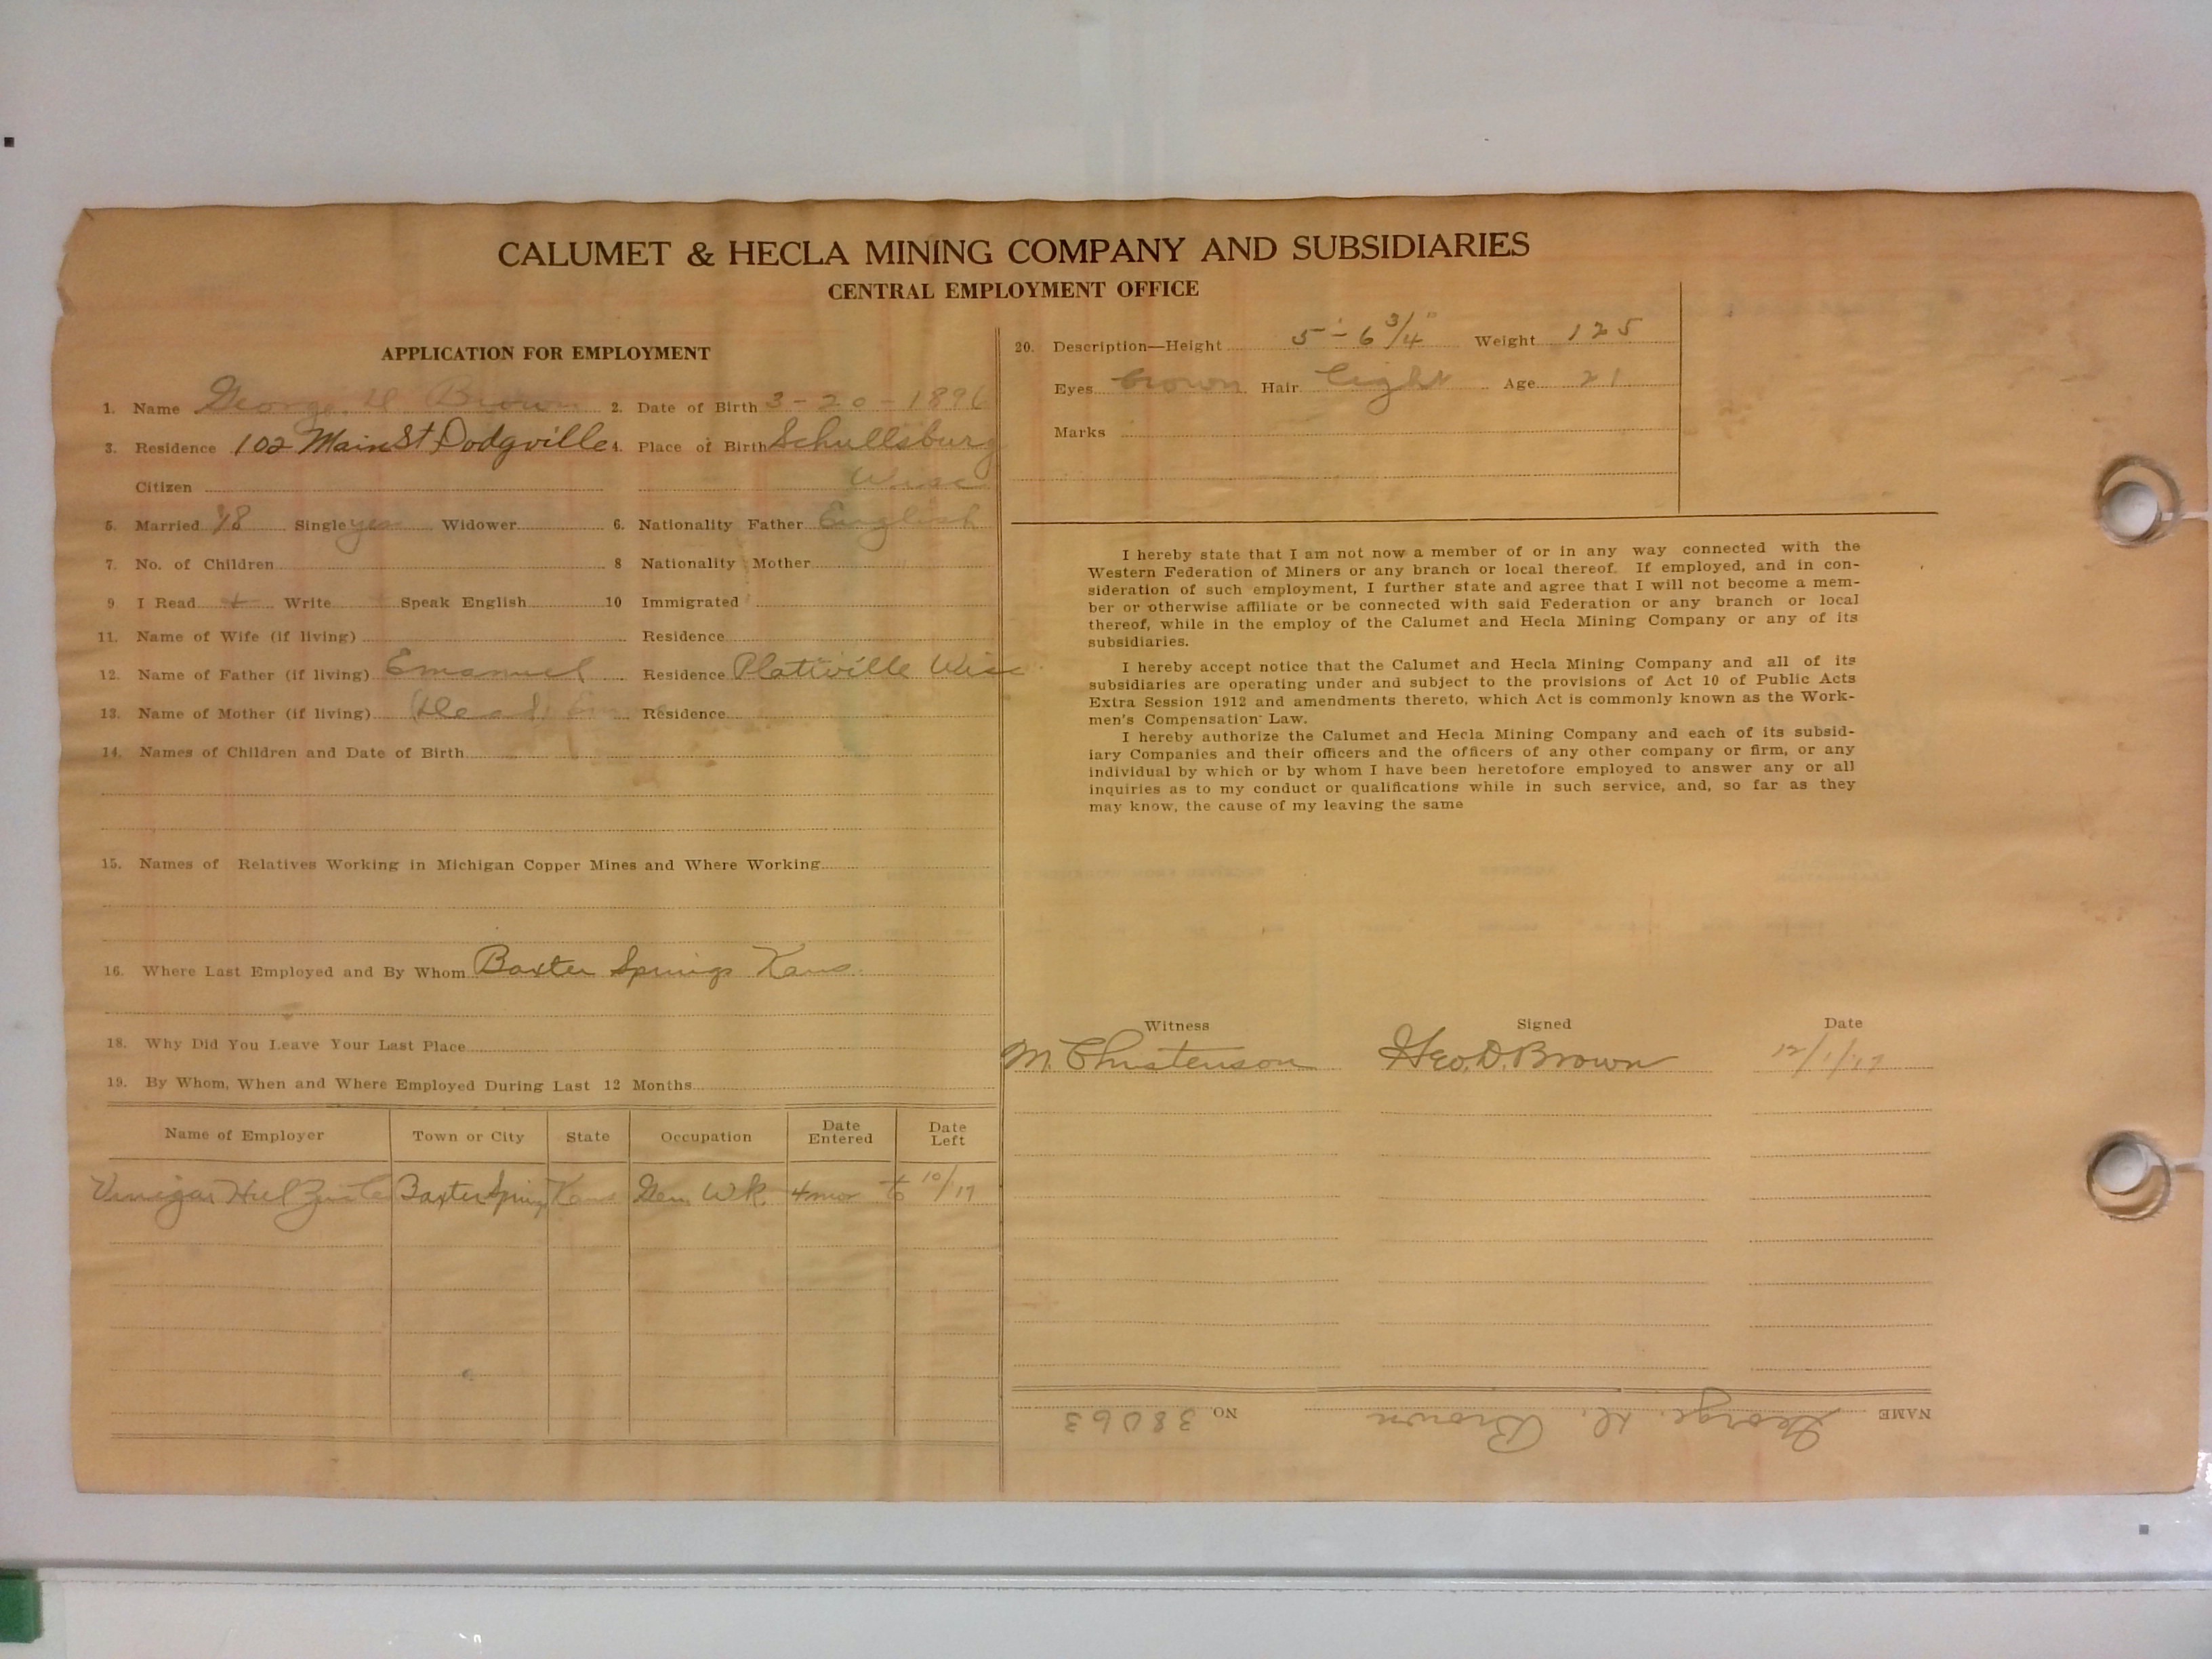 CALUMET & HECLA MINING COMPANY AND SUBSIDIARIES
CENTRAL EMPLOYMENT OFFICE
APPLICATION FOR EMPLOYMENT
1. Name George D Brown 2. Date of Birth 3-20-1896
3. Residence 102 Main St Dodgville 4. Place of Birth Schullsburg
Citizen Wisc
5. Married 48 Single yes Widower 6. Nationality Father English
7. No. of Children 8 Nationality Mother
9 I Read + Write Speak English 10 Immigrated
11. Name of Wife (if living) Residence
12. Name of Father (if living) Emanuel Residence Plattville Wisc
13. Name of Mother (if living) (Dead) Residence
14. Names of Children and Date of Birth
15. Names of Relatives Working in Michigan Copper Mines and Where Working
16. Where Last Employed and By Whom Baxter Springs Kans.
18. Why Did You Leave Your Last Place
19. By Whom, When and Where Employed During Last 12 Months
Name of Employer Town or City State Occupation Date Entered Date Left
Vinegar Hill Baxter Spring Kans Gen. Wk. 4 mos to 10/17
20. Description—Height 5'-6 3/4" Weight 125
Eyes brown Hair light Age 21
Marks
I hereby state that I am not now a member of or in any way connected with the
Western Federation of Miners or any branch or local thereof. If employed, and in con-
sideration of such employment, I further state and agree that I will not become a mem-
ber or otherwise affiliate or be connected with said Federation or any branch or local
thereof, while in the employ of the Calumet and Hecla Mining Company or any of its
subsidiaries.
I hereby accept notice that the Calumet and Hecla Mining Company and all of its
subsidiaries are operating under and subject to the provisions of Act 10 of Public Acts
Extra Session 1912 and amendments thereto, which Act is commonly known as the Work-
men's Compensation Law.
I hereby authorize the Calumet and Hecla Mining Company and each of its subsid-
iary Companies and their officers and the officers of any other company or firm, or any
individual by which or by whom I have been heretofore employed to answer any or all
inquiries as to my conduct or qualifications while in such service, and, so far as they
may know, the cause of my leaving the same
Witness Signed Date
M. Christenson Geo. D. Brown 12/1/17
NAME George D. Brown NO. 38063